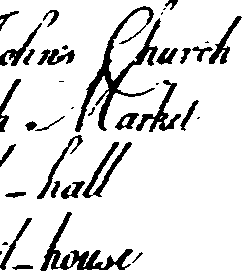 Johns Church
h Market
l-hall
il-house